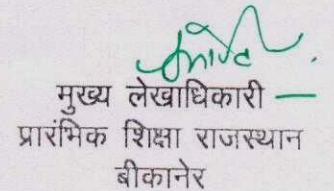 मुख्य लेखाधिकारी —
प्रारंभिक शिक्षा राजस्थान
बीकानेर